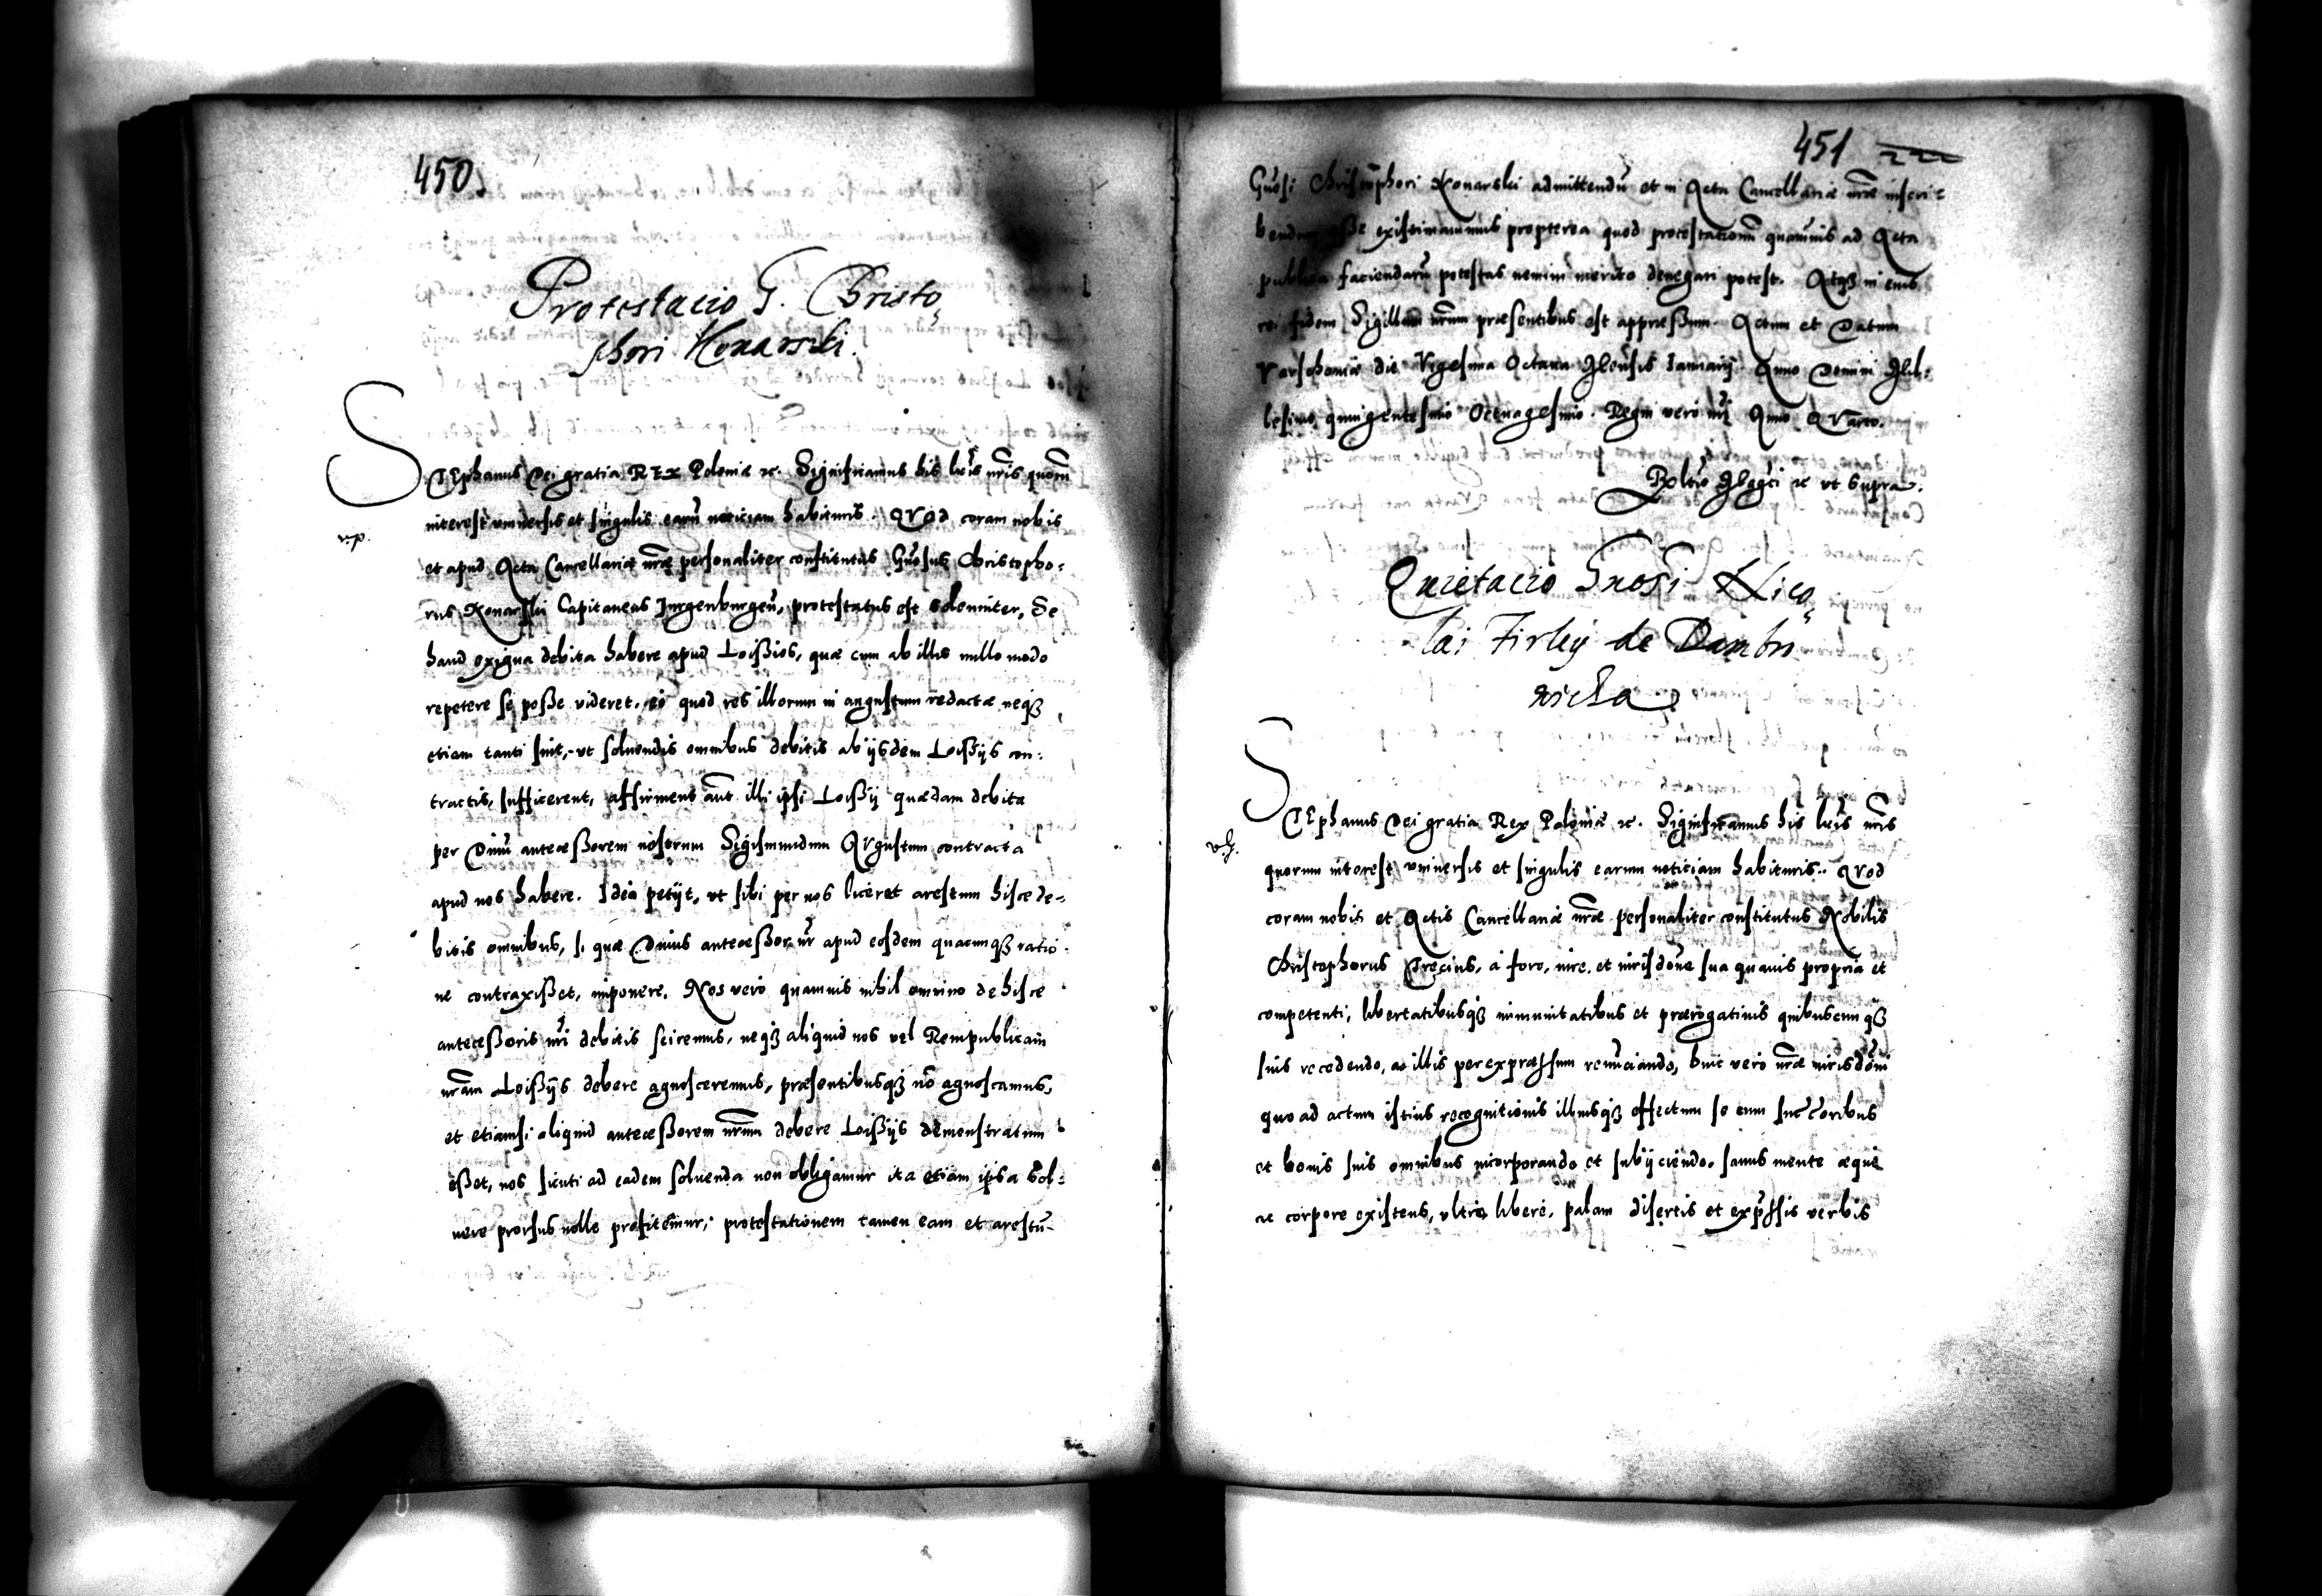 450.
Protestacio G. Christo„
phori Konarski.
STEphanus Dei gratia REX Poloniæ etc. Significamus his lrĩs nrĩs quorũ
interest vniuersis et singulis earũ noticiam habituris. QVod coram nobis
et apud Acta Cancellariæ nrãe personaliter constitutus Gñosus Christopho:
rus Konarski Capitaneus Jurgenburgeñ, protestatus est solenniter, Se
haud exigua debita habere apud Loißios, quæ cum ab illis nullo modo
repetere se poße videret, eò quod res illorum in angustum redactæ neqȝ
etiam tanti sint, vt soluendis omnibus debitis ab ijsdem Loißijs con:
tractis, sufficerent, affirment aũt illi ipsi Loißij quædam debita
per Diuũ anteceßorem nostrum Sigismundum AVgustum contracta
apud nos habere. Ideo petijt, vt sibi per nos liceret arestum hisce de=
bitis omnibus, si quæ Diuus anteceßor nr̃ apud eosdem quacunqȝ ratio
ne contraxißet, imponere. Nos verò quamuis nihil omnino de hisce
anteceßoris nrĩ debitis sciremus, neqȝ aliquid nos vel Rempublicam
nrãm Loißijs debere agnosceremus, præsentibusqȝ nõ agnoscamus,
et etiamsi aliquid anteceßorem nrũm debere Loißijs demonstratum
eßet, nos sicuti ad eadem soluenda non obligamur ita etiam ipsa sol:
uere prorsus nolle profitemur; protestationem tamen eam et arestũ
451
Gñosi Christophori Konarski admittendũ et in Acta Cancellariæ nrãe inscri=
bendum eße existimauimus propterea quod protestationũ quamuis ad Acta
publica faciendarũ potestas nemini merito denegari potest. Atqȝ in eius
rei fidem Sigillum nrũm præsentibus est appreßum. Actum et Datum
Varschouiæ die Vigesima Octaua Mensis Ianuarij Anno Domini Mil:
lesimo quingentesimo Octuagesimo. Regni verò nrĩ Anno QVarto.
etc vt supra.
Quietacio Gnosi Nico„
lai Firleij de Dambro
wicza
STEphanus Dei gratia Rex Poloniæ etc. Significamus his lrĩs nrĩs
quorum interest vniuersis et singulis earum noticiam habituris. QVod
coram nobis et Actis Cancellariæ nrãe personaliter constitutus Nobilis
Christophorus Trecius, à foro, iure, et iurisdõne sua quauis propria et
competenti, libertatibusqȝ immunitatibus et prærogatiuis quibuscunqȝ
suis recedendo, ac illis per expressum renũciando, huic verò nrãe iurisdõni
quo ad actum istius recognitionis illiusqȝ effectum se cum succoribus
et bonis suis omnibus incorporando et subijciendo. sanus mente æque
ac corpore existens, vltrò, liberè, palam disertis et expssis verbis